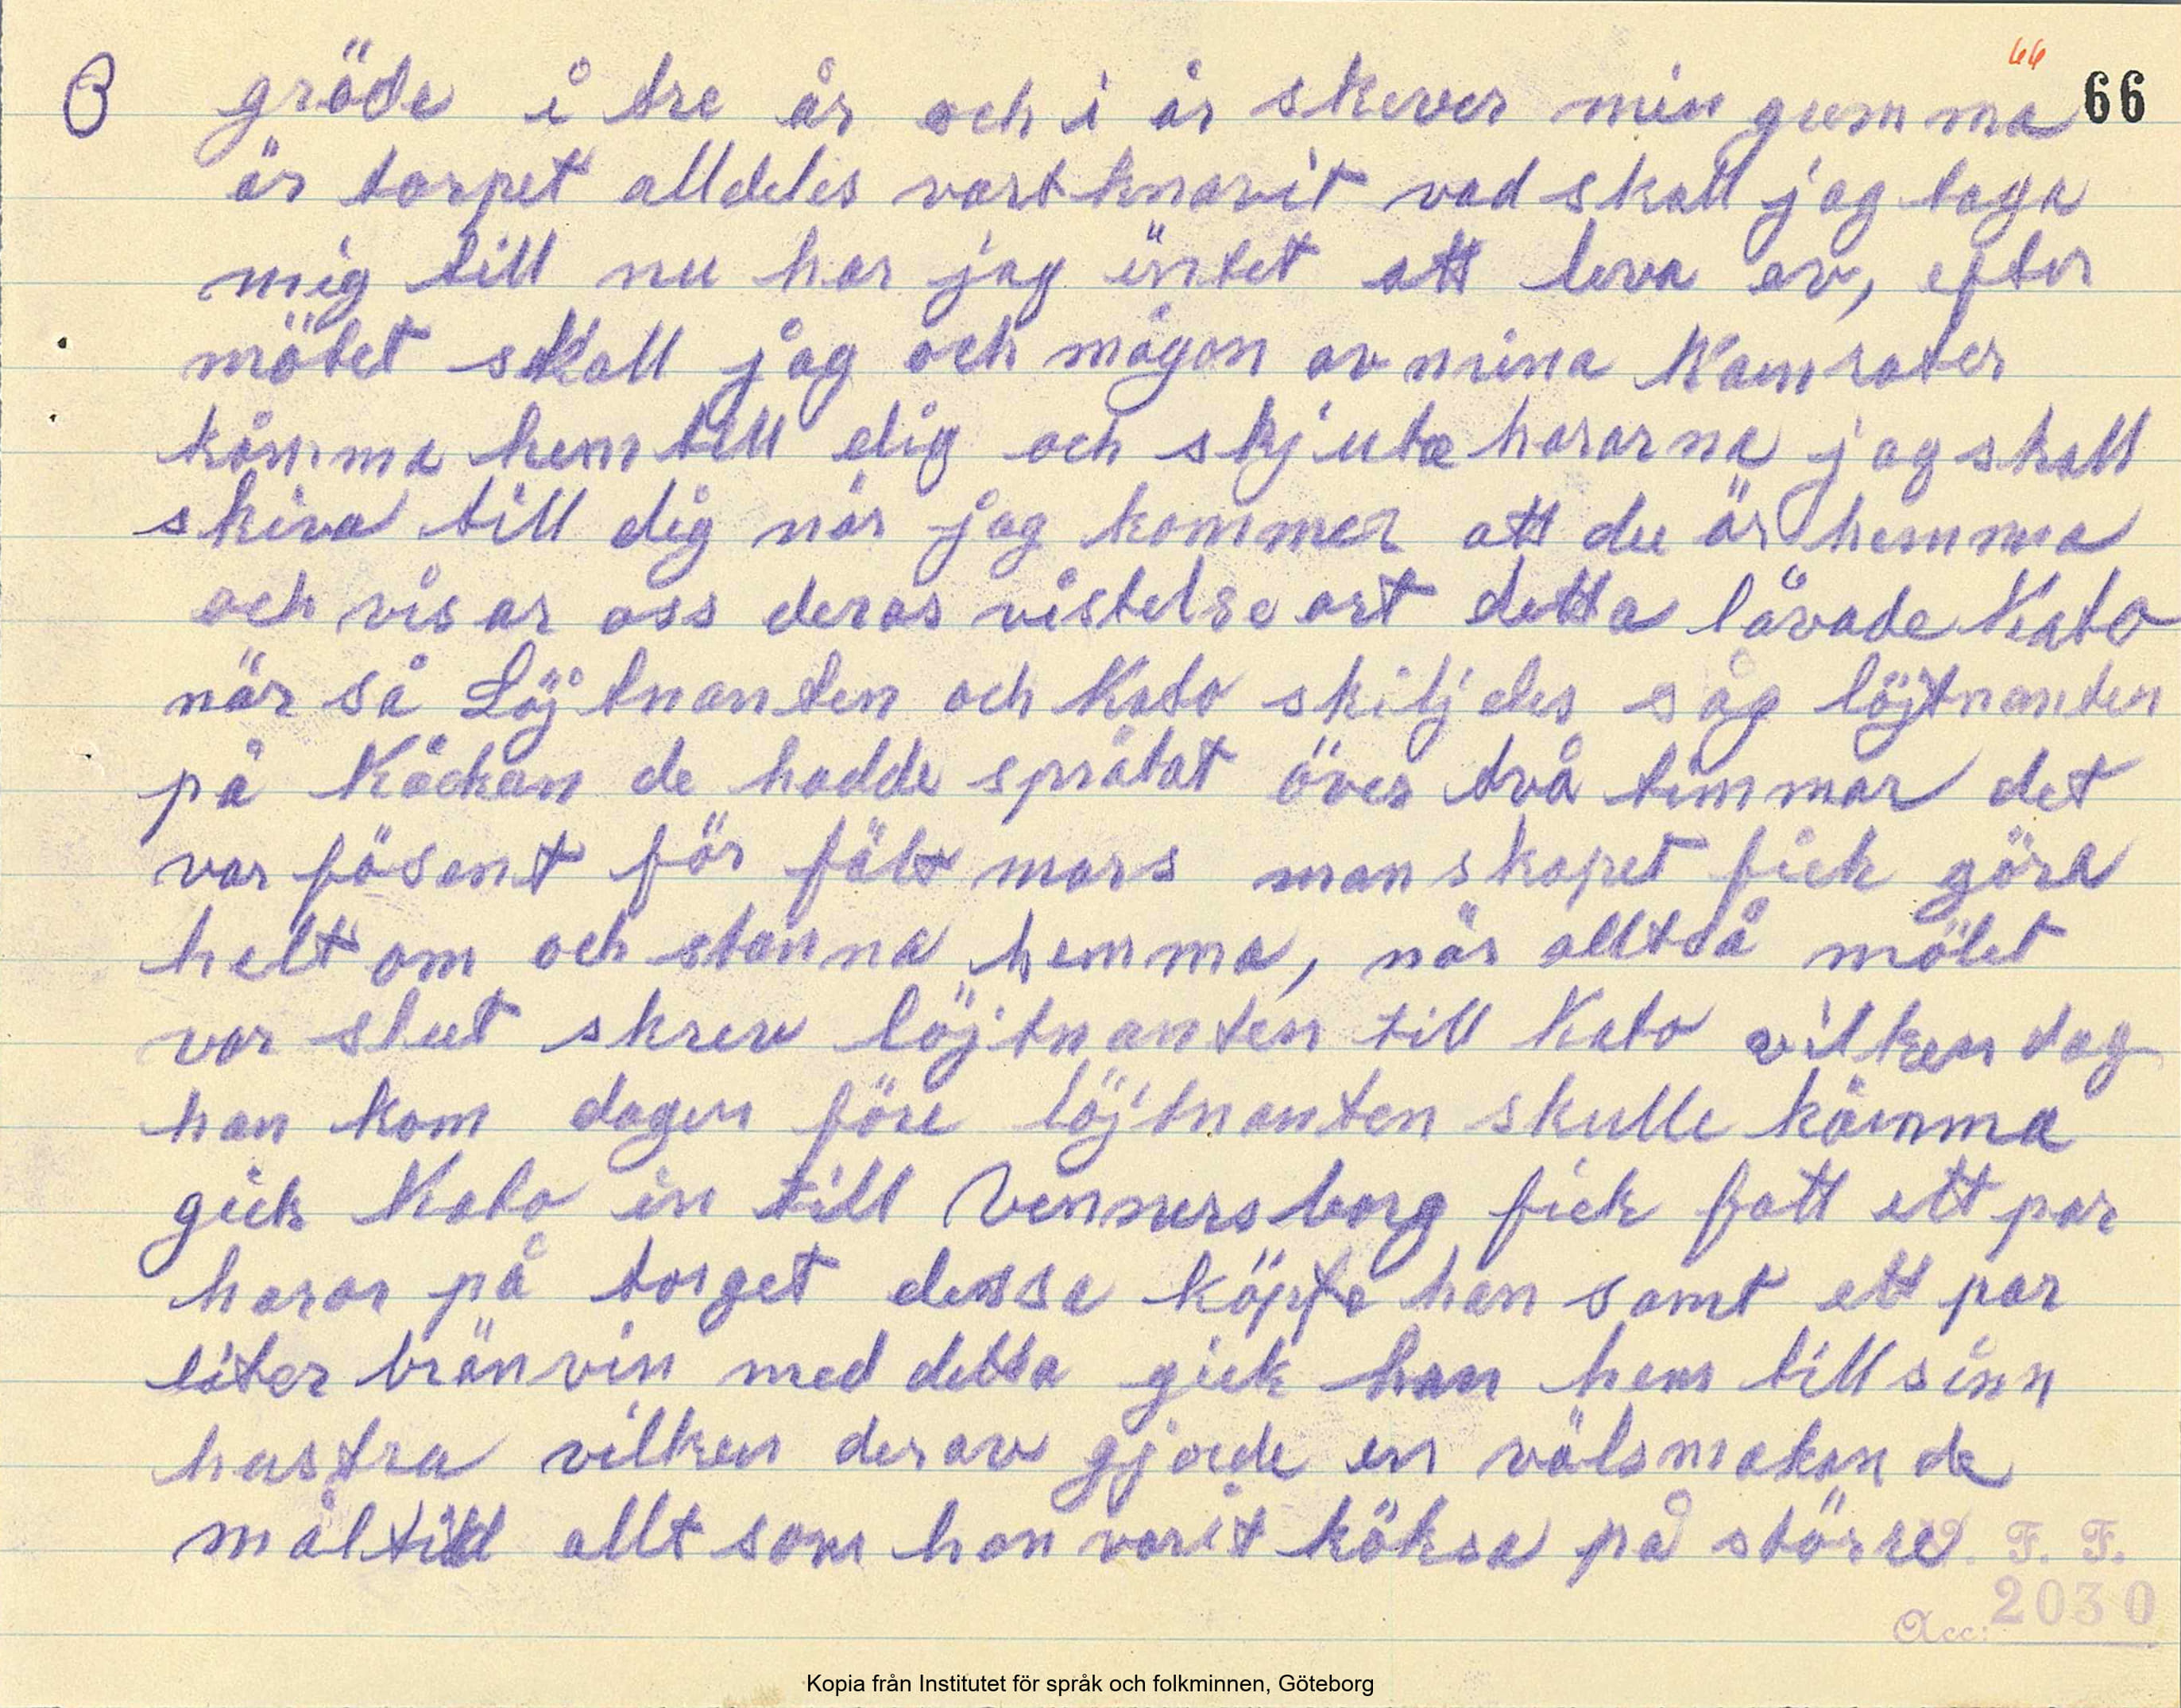 66
3 gröde i tre år och i år skever min gumma 66
är torpet alldeles vart knavit vad skall jag taga
mig till nu har jag intet att leva av, efter
mötet skall jag och mågon av mina Kamrater
kåmma hem till dig och skjuta hararna jag skall
skiva till dig när jag kommer att du är hemma
och visar oss deras vistelse ort detta låvade Kato
när så Löjtnanten och Kato skiljdes såg löjtnanten
på Kåckan de hadde språtat över två timmar det
var fösent för fält mars manskapet fick göra
helt om och stanna hemma, når alltså mötet
var slut skrev löjtnanten till Kato vilken dag
han kom dagen före löjtnanten skulle kåmma
gick Kato in till Vennersborg fick fatt ett par
harar på torget dessa köpte han samt ett par
liter bränvin med detta gick han hem till sinn
hustra vilken derav gjorde en välsmakande
måltid allt som hon varit köksa på större
F. F.
Acc: 2030
Kopia från Institutet för språk och folkminnen, Göteborg